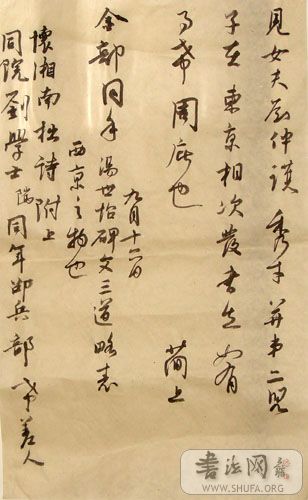 見女夫劉仲謨秀才并弟二兒
子在東京相次發書去如有
事希周庇也　簡上
九月十六日
金部同年　湯世怡碑文三道略表
西京之物也
懷湘南拙詩附上
同院劉學士隨同年邵兵部希差人
書法网
WWW.SHUFA.ORG